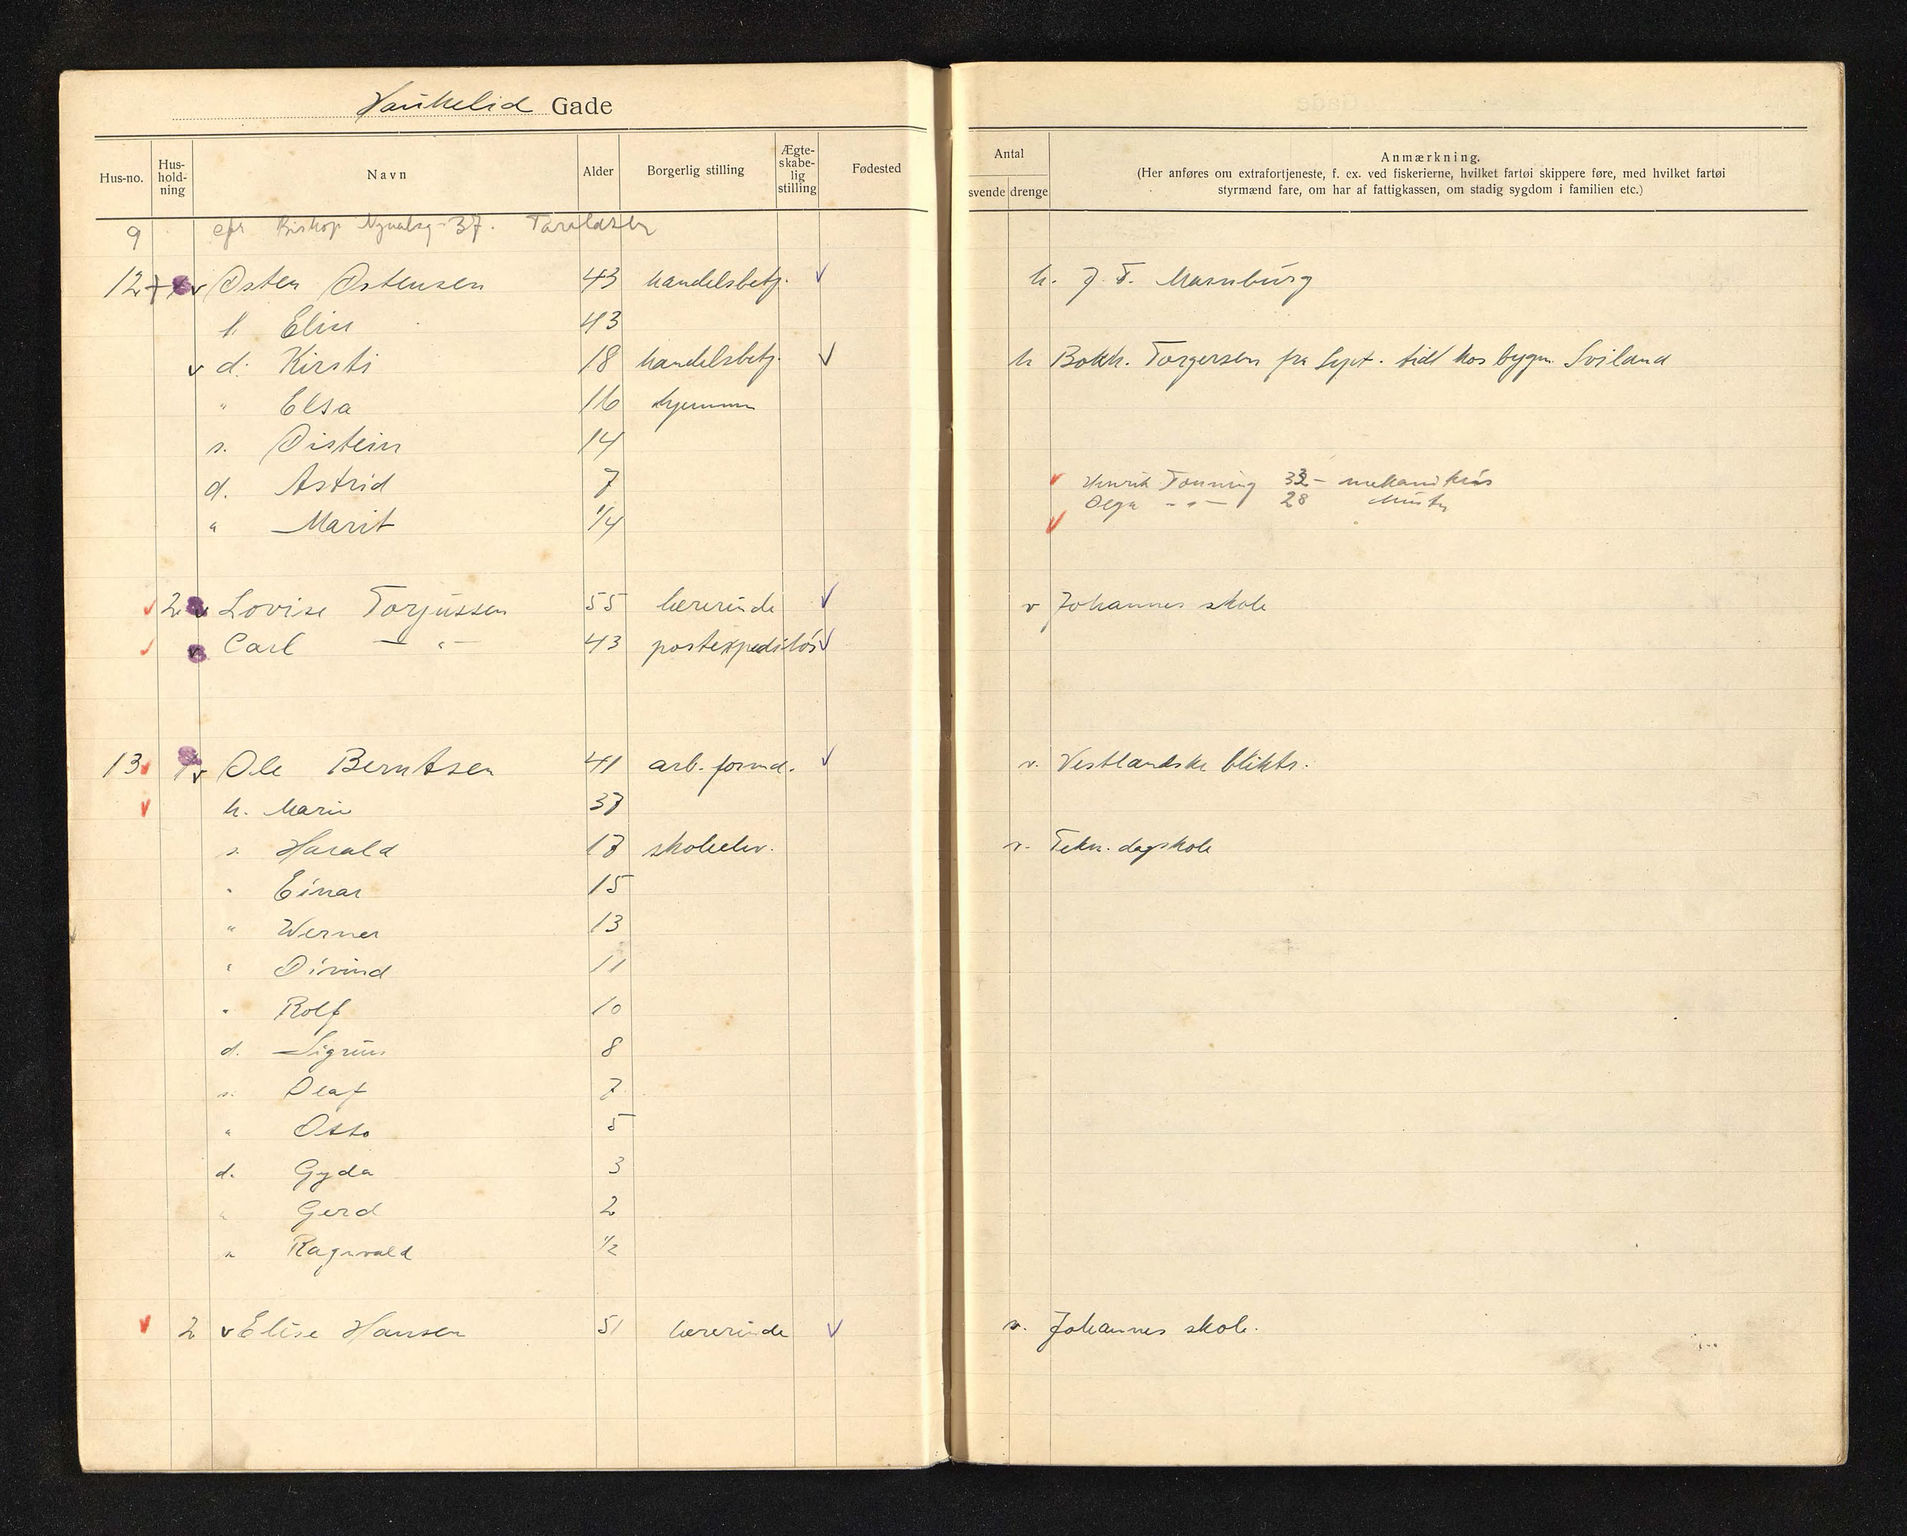 Haukelid Gade
Hus-no. Hus-hold-ning Navn Alder Borgerlig stilling Ægte-skabe-lig stilling Fødested
Antal
svende drenge
Anmærkning.
(Her anføres om extrafortjeneste, f. ex. ved fiskerierne, hvilket fartøi skippere føre, med hvilket fartøi
styrmænd fare, om har af fattigkassen, om stadig sygdom i familien etc.)
9 Bishop 37. Taraldsen
12 v Østen Østensen 43 handelsbetj. v h. J. F.
h Elise 43
v d. Kirsti 18 handelsbetj. v h Bokh. Torgersen fra Sept. tidl hos bygm. Sviland
" Elsa 16 hjemme
s. Øistein 14
d. Astrid 7
Henrik Tonning 32
Olga - " - 28
" Marit 1/4
2 v Lovise Torjussen 55 lærerinde v v Johannes skole
v Carl - " - 43 postexpeditør v
13 1 v Ole Berntsen 41 arb. formd. v v. Vestlandske bliktr.
h. Marie 37
s. Harald 17 skoleelev. v. Tekn. dagskole
" Einar 15
" Werner 13
" Øivind 11
" Rolf 10
d. Sigrun 8
s. Olaf 7
" Otto 5
d. Gyda 3
" Gerd 2
" Ragnvald 1/2
2 v Elise Hansen 51 lærerinde v v. Johannes skole.